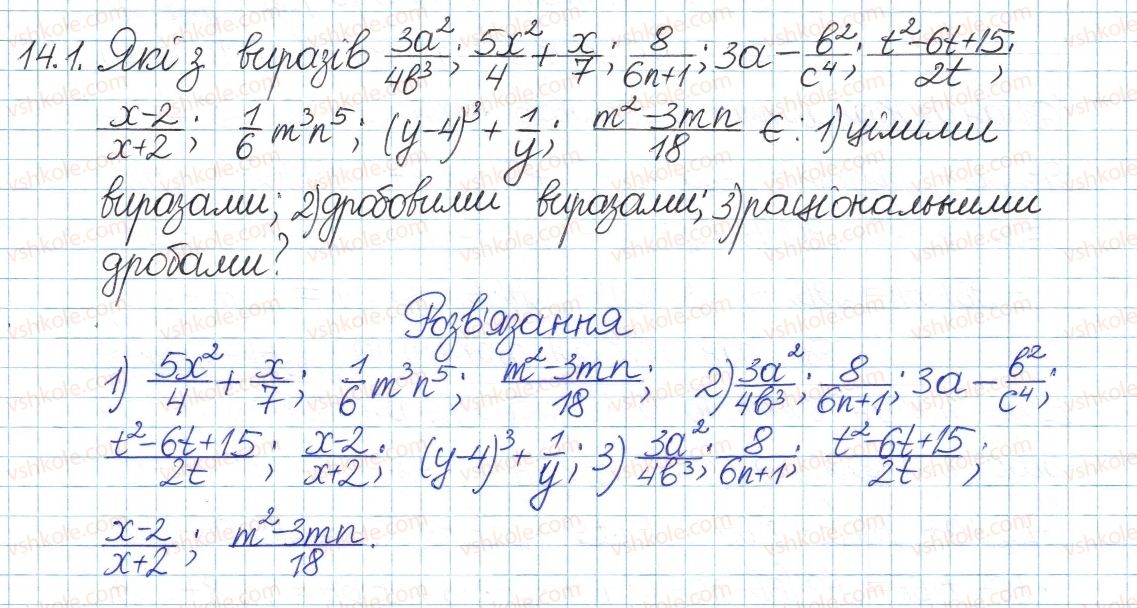 14.1. Які з виразів 3a²/4b³; 5x²/4 + x/7; 8/6n+1; 3a − b²/c⁴; t²−6t+15/2t;
x−2/x+2; 1/6 m³n⁵; (y−4)³ + 1/y; m²−3mn/18 є: 1) цілими
виразами; 2) дробовими виразами; 3) раціональними
дробами?
Розв'язання
1) 5x²/4 + x/7; 1/6 m³n⁵; m²−3mn/18; 2) 3a²/4b³; 8/6n+1; 3a − b²/c⁴;
t²−6t+15/2t; x−2/x+2; (y−4)³ + 1/y; 3) 3a²/4b³; 8/6n+1; t²−6t+15/2t;
x−2/x+2; m²−3mn/18.